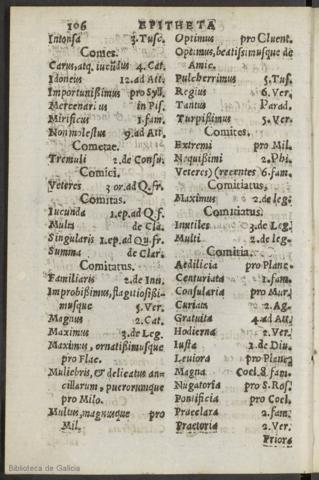 106 EPITHETA
Intonsa 3.Tusc.
Comes.
Carus, atq. iucūdus 4. Cat.
Idoneus 12.ad Att.
Importunißimus pro Syll.
Mercenarius in Pis.
Mirificus 1.fam.
Non molestus 9.ad Att.
Cometae.
Tremuli 2.de Consu.
Comici.
Veteres 3 or.ad Q.fr.
Comitas.
Iucunda 1.ep.ad Q.f.
Multa de Cla.
Singularis 1.ep.ad Qu.fr.
Summa de Clar.
Comitatus.
Familiaris 2.de Inu.
Improbißimus, flagitiosißi-
musque 5.Ver.
Magnus 2.Cat.
Maximus 3.de Leg.
Maximus, ornatißimusque
pro Flac.
Muliebris, & delicatus an-
cillarum, puerorumque
pro Milo.
Multus, magnusque pro
Mil.
Optimus pro Cluent.
Optimus, beatiss:musque de
Amic.
Pulcherrimus 5.Tus.
Regius 6.Ver.
Tantus Parad.
Turpißimus 5.Ver.
Comites.
Extremi pro Mil.
Nequißimi 2.Phi.
Veteres) (recentes 6.fam.
Comitiatus.
Maximus 2.de leg.
Comitiatus.
Inutiles 3.de Leg.
Multi 2.de leg.
Comitia.
Aedilicia pro Planc.
Centuriata 1.fam.
Consularia pro Mur.
Curiata 2.Ag.
Gratuita 4.ad Att.
Hodierna 2.Ver.
Iusta 1.de Diu.
Leuiora pro Planc.
Magna Coel.8.fam.
Nugatoria pro S.Ros.
Pontificia pro Coel.
Praeclara 2.fam.
Praetoria 2.Ver.
Priora
Biblioteca de Galicia